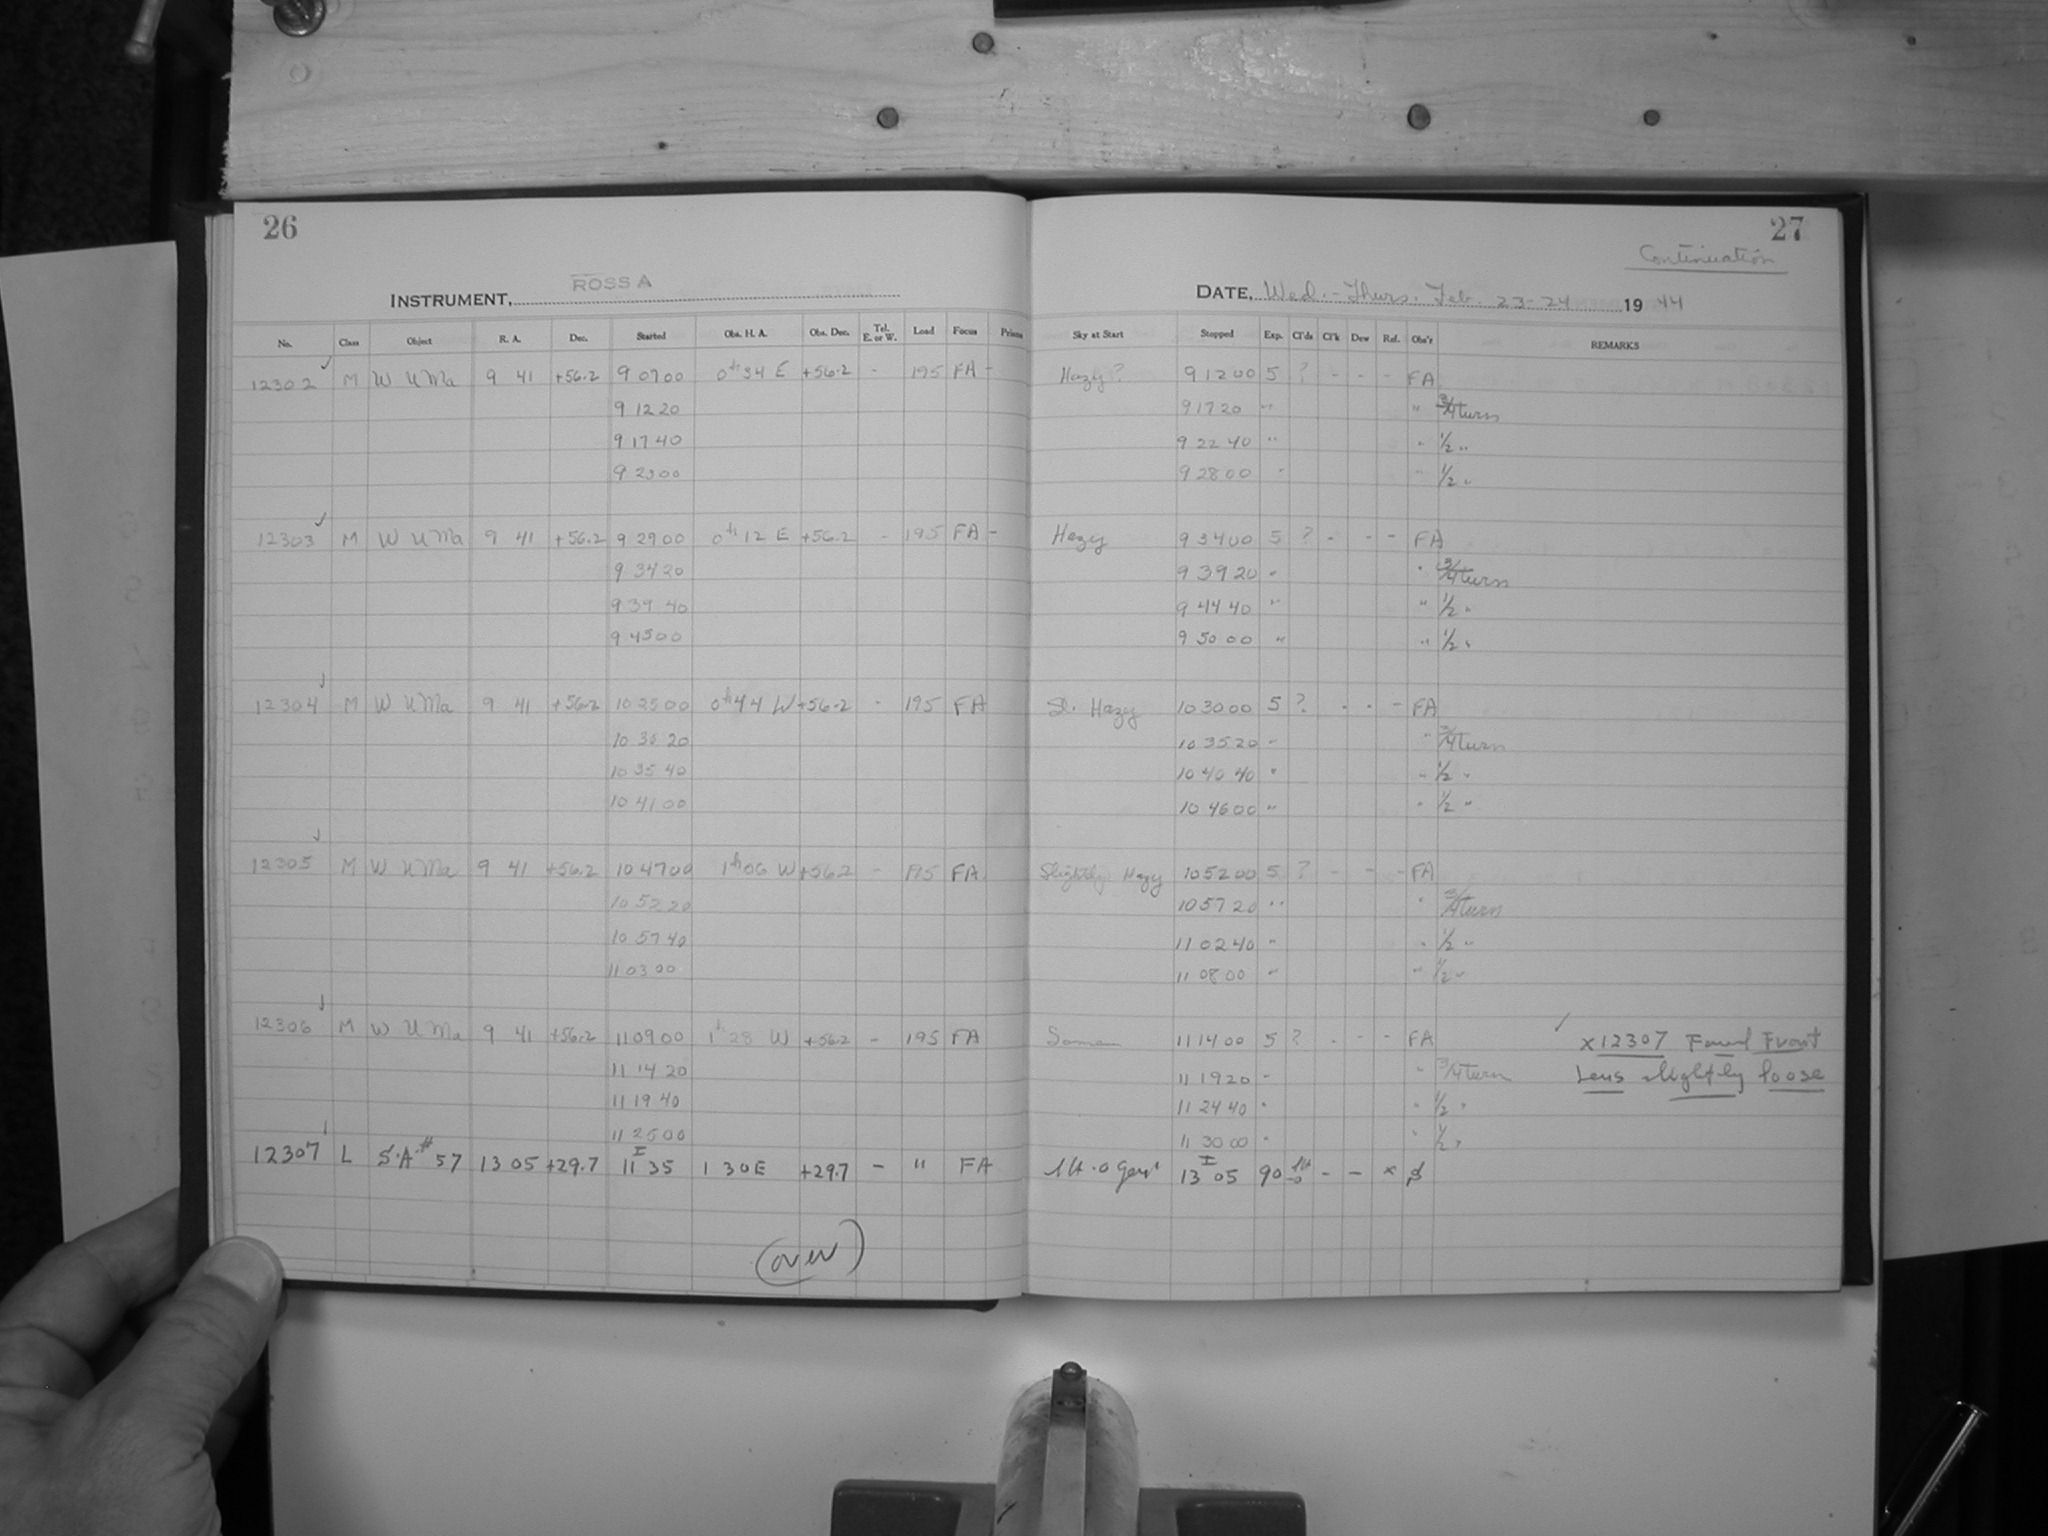 26
ROSS A
INSTRUMENT,
No. Class Object R. A. Dec. Started Obs. H. A. Obs. Dec. Tel. E. or W. Load Focus Prism
12302 M W UMa 9 41 +56.2 9 07 00 0h 34 E +56.2 - 195 FA -
9 12 20
9 17 40
9 23 00
12303 M W UMa 9 41 +56.2 9 29 00 0h 12 E +56.2 - 195 FA -
9 34 20
9 39 40
9 45 00
12304 M W UMa 9 41 +56.2 10 25 00 0h 44 W +56.2 - 195 FA
10 30 20
10 35 40
10 41 00
12305 M W UMa 9 41 +56.2 10 47 00 1h 06 W +56.2 - 195 FA
10 52 20
10 57 40
11 03 00
12306 M W UMa 9 41 +56.2 11 09 00 1h 28 W +56.2 - 195 FA
11 14 20
11 19 40
11 25 00
12307 L S.A # 57 13 05 +29.7 11 35 1 30 E +29.7 - " FA
(over)
27
Continuation
DATE, Wed. - Thurs. Feb. 23-24 1944
Sky at Start Stopped Exp. Cl'ds Cl'k Dew Ref. Obs'r REMARKS
Hazy? 9 12 00 5 ? - - - FA
9 17 20 " " 3/4 turn
9 22 40 " " 1/2 "
9 28 00 " " 1/2 "
Hazy 9 34 00 5 ? - - - FA
9 39 20 " " 3/4 turn
9 44 40 " " 1/2 "
9 50 00 " " 1/2 "
Sl. Hazy 10 30 00 5 ? - - - FA
10 35 20 " " 3/4 turn
10 40 40 " " 1/2 "
10 46 00 " " 1/2 "
Slightly Hazy 10 52 00 5 ? - - - FA
10 57 20 " " 3/4 turn
11 02 40 " " 1/2 "
11 08 00 " " 1/2 "
Same 11 14 00 5 ? - - - FA x12307 Found Front
11 19 20 " " 3/4 turn Lens slightly loose
11 24 40 " " 1/2 "
11 30 00 " " 1/2 "
13 05 90 - - x